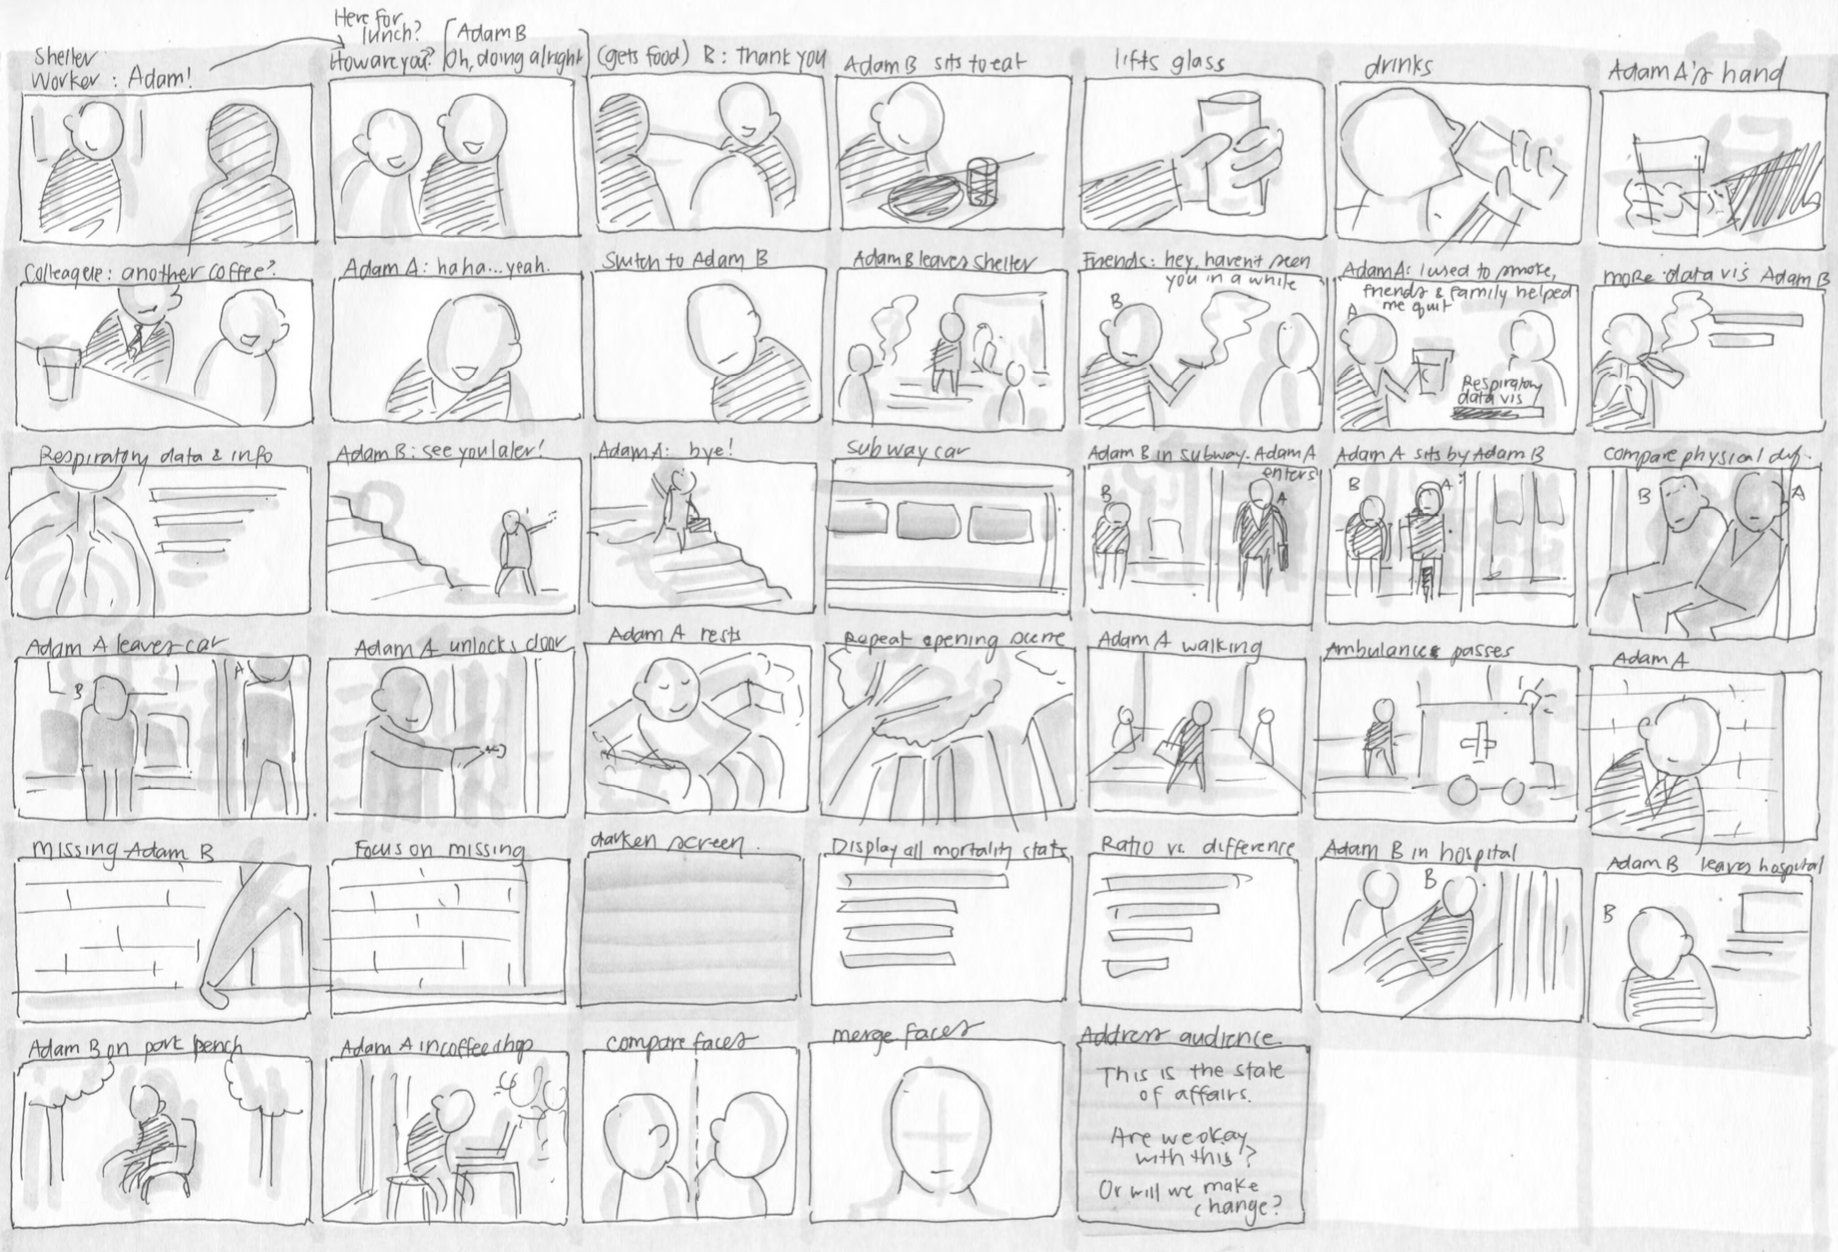 Shelter
Worker: Adam!
Here for
lunch?
How are you?
Adam B
Oh, doing alright
(gets food) B: Thank you
Adam B sits to eat
lifts glass
drinks
Adam A's hand
Colleague: another coffee?
Adam A: haha...yeah.
Switch to Adam B
Adam B leaves shelter
Friends: hey, haven't seen
you in a while
B
Adam A: I used to smoke,
friends & family helped
me quit
A
Respiratory
data vis
more data vis Adam B
Respiratory data & info
Adam B: see you later!
Adam A: bye!
subway car
Adam B in subway. Adam A
enters
B
A
Adam A sits by Adam B
B
A
compare physical dif.
B
A
Adam A leaves car
B
A
Adam A unlocks door
Adam A rests
Repeat opening scene
Adam A walking
Ambulance passes
Adam A
missing Adam B
Focus on missing
darken screen.
Display all mortality stats
Ratio vs. difference
Adam B in hospital
B
Adam B leaves hospital
B
Adam B on park bench
Adam A in coffee shop
compare faces
merge faces
Address audience.
This is the state
of affairs.
Are we okay
with this?
Or will we make
change?